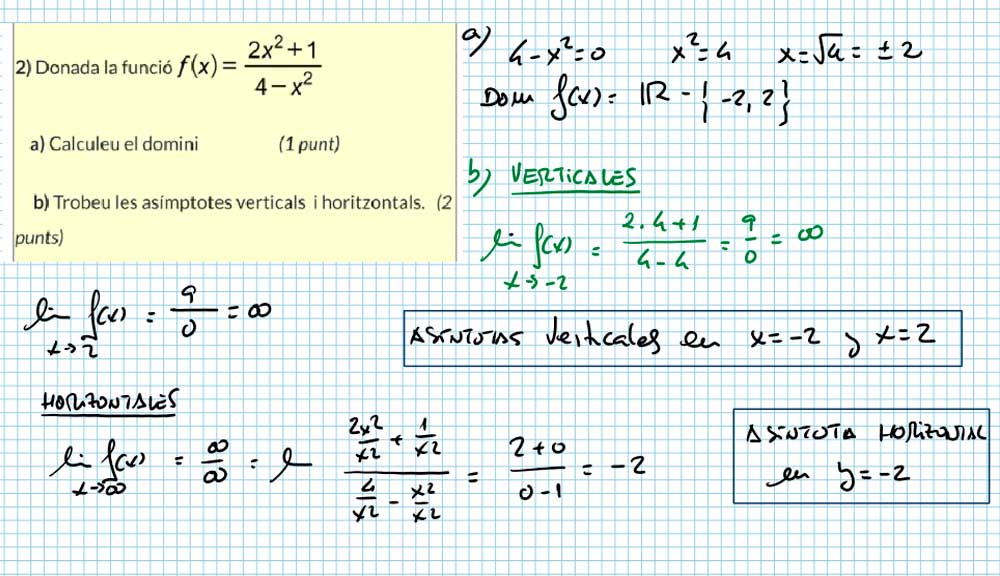 2) Donada la funció f(x) = (2x²+1)/(4−x²)
a) Calculeu el domini (1 punt)
b) Trobeu les asímptotes verticals i horitzontals. (2
punts)
a) 4-x²=0 x²=4 x=√4=±2
Dom f(x)= ℝ-{-2,2}
b) VERTICALES
lim f(x) = (2·4+1)/(4-4) = 9/0 = ∞
x→-2
lim f(x) = 9/0 = ∞
x→2
ASINTOTAS verticales en x=-2 y x=2
HORIZONTALES
lim f(x) = ∞/∞ = l (2x²/x² + 1/x²)/(4/x² - x²/x²) = (2+0)/(0-1) = -2
x→∞
ASINTOTA HORIZONTAL
en y=-2